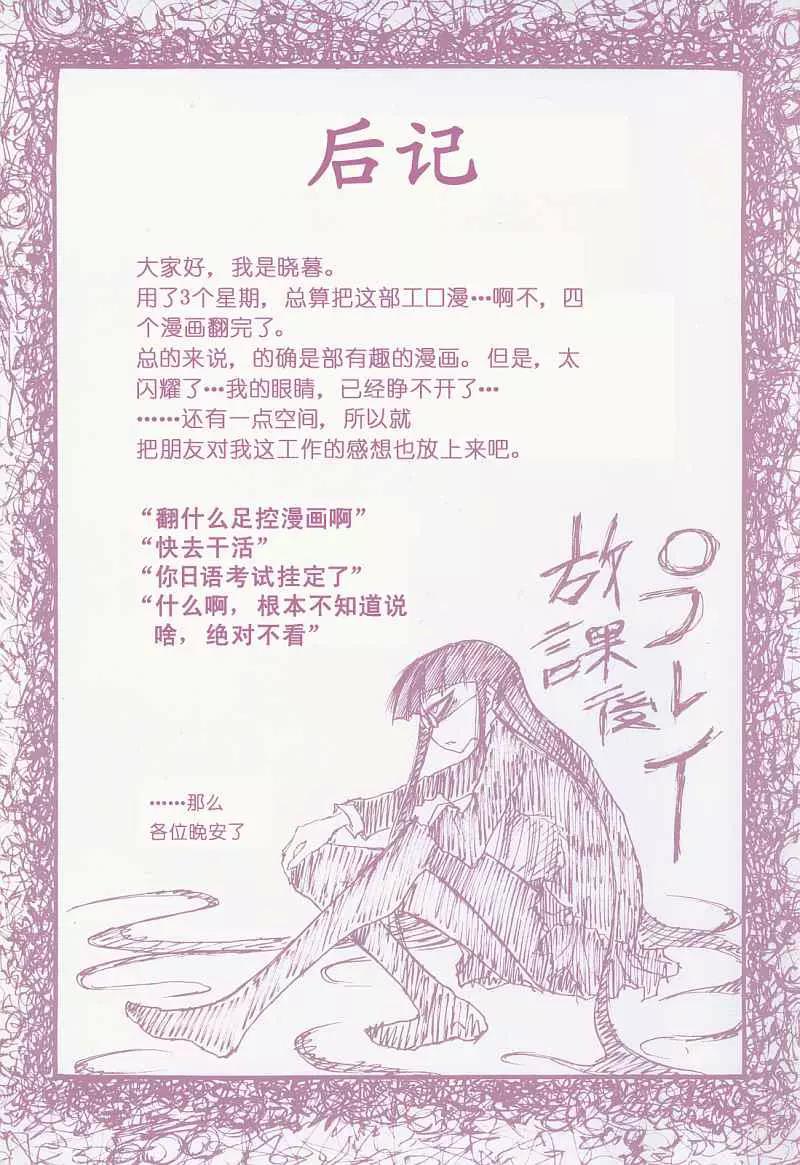 后记
大家好，我是晓暮。
用了3个星期，总算把这部工口漫…啊不，四
个漫画翻完了。
总的来说，的确是部有趣的漫画。但是，太
闪耀了…我的眼睛，已经睁不开了…
……还有一点空间，所以就
把朋友对我这工作的感想也放上来吧。
“翻什么足控漫画啊”
“快去干活”
“你日语考试挂定了”
“什么啊，根本不知道说
啥，绝对不看”
放課後
プレイ
……那么
各位晚安了